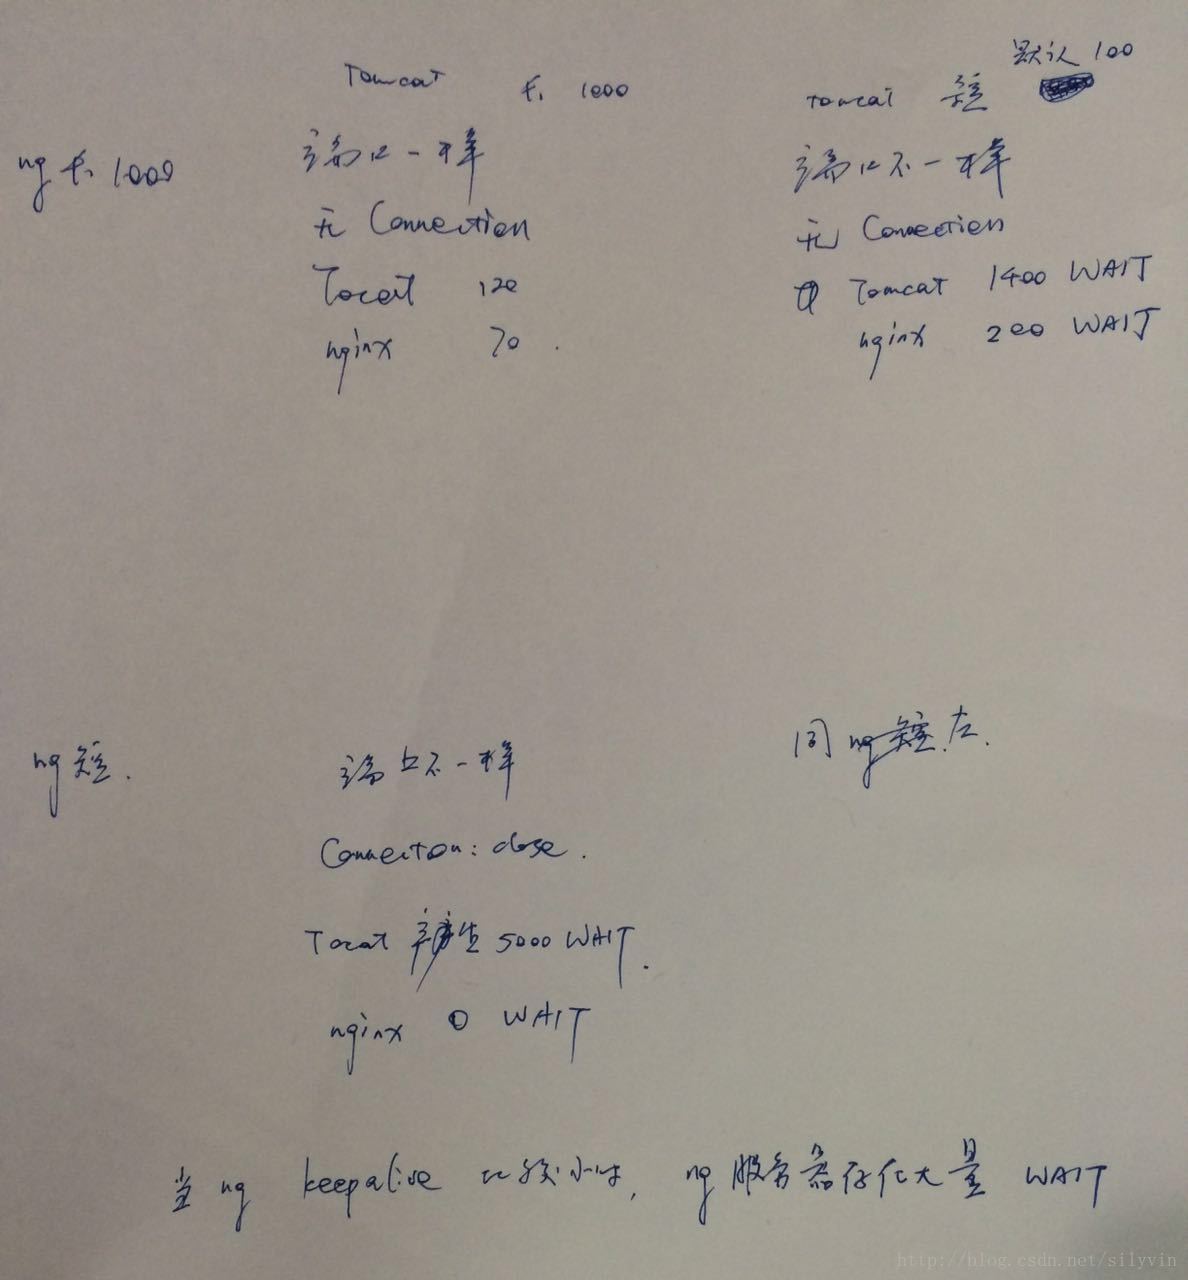 Tomcat 长 1000
Tomcat 短 默认 100
ng 长 1000
端口一样
无 Connection
Tocat 120
nginx 70 .
端口不一样
无 Connection
Tomcat 1400 WAIT
nginx 200 WAIT
ng 短 .
端口不一样
Connection: close .
Tocat 产生 5000 WAIT .
nginx 0 WAIT
同 左 .
当 ng keepalive 比较小时, ng 服务器存在大量 WAIT
http://blog.csdn.net/silyvin